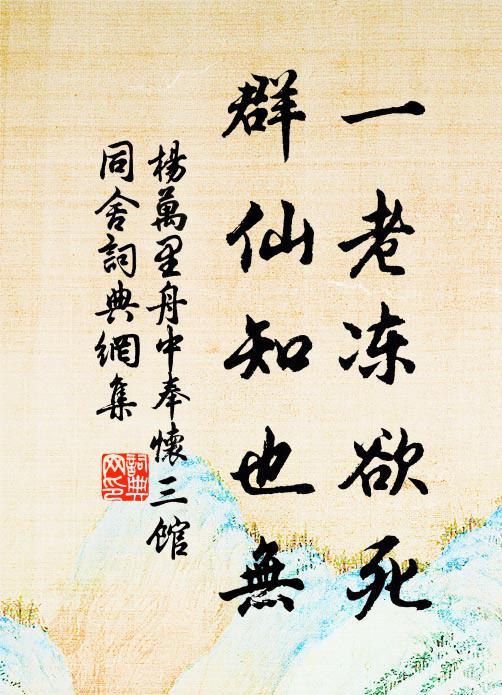 一老冻欲死
群仙知也無
楊萬里舟中奉懷三館
同舍詞典網集
詞典网印